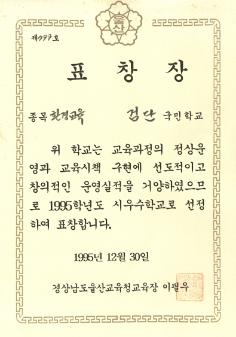 제777호
표창장
종목 환경교육 검단 국민학교
위 학교는 교육과정의 정상운
영과 교육시책 구현에 선도적이고
창의적인 운영실적을 거양하였으므
로 1995학년도 시우수학교로 선정
하여 표창합니다.
1995년 12월 30일
경상남도울산교육청교육장 이필우